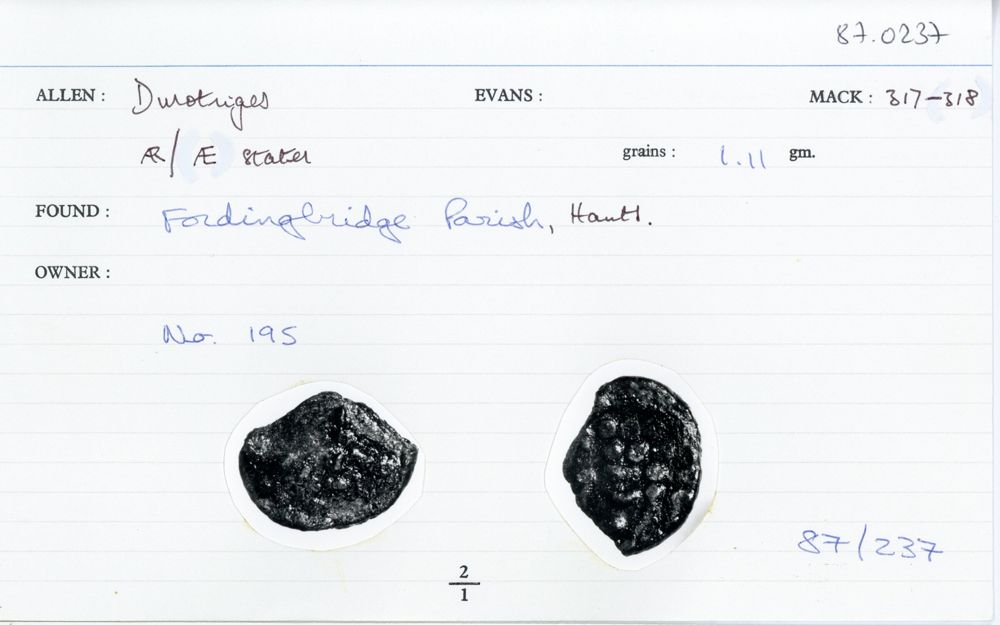 87.0237
ALLEN : Durotriges EVANS : MACK : 317-318
AR/ Æ stater grains : 1.11 gm.
FOUND : Fordingbridge Parish, Hants.
OWNER :
No. 195
87/237
2
1